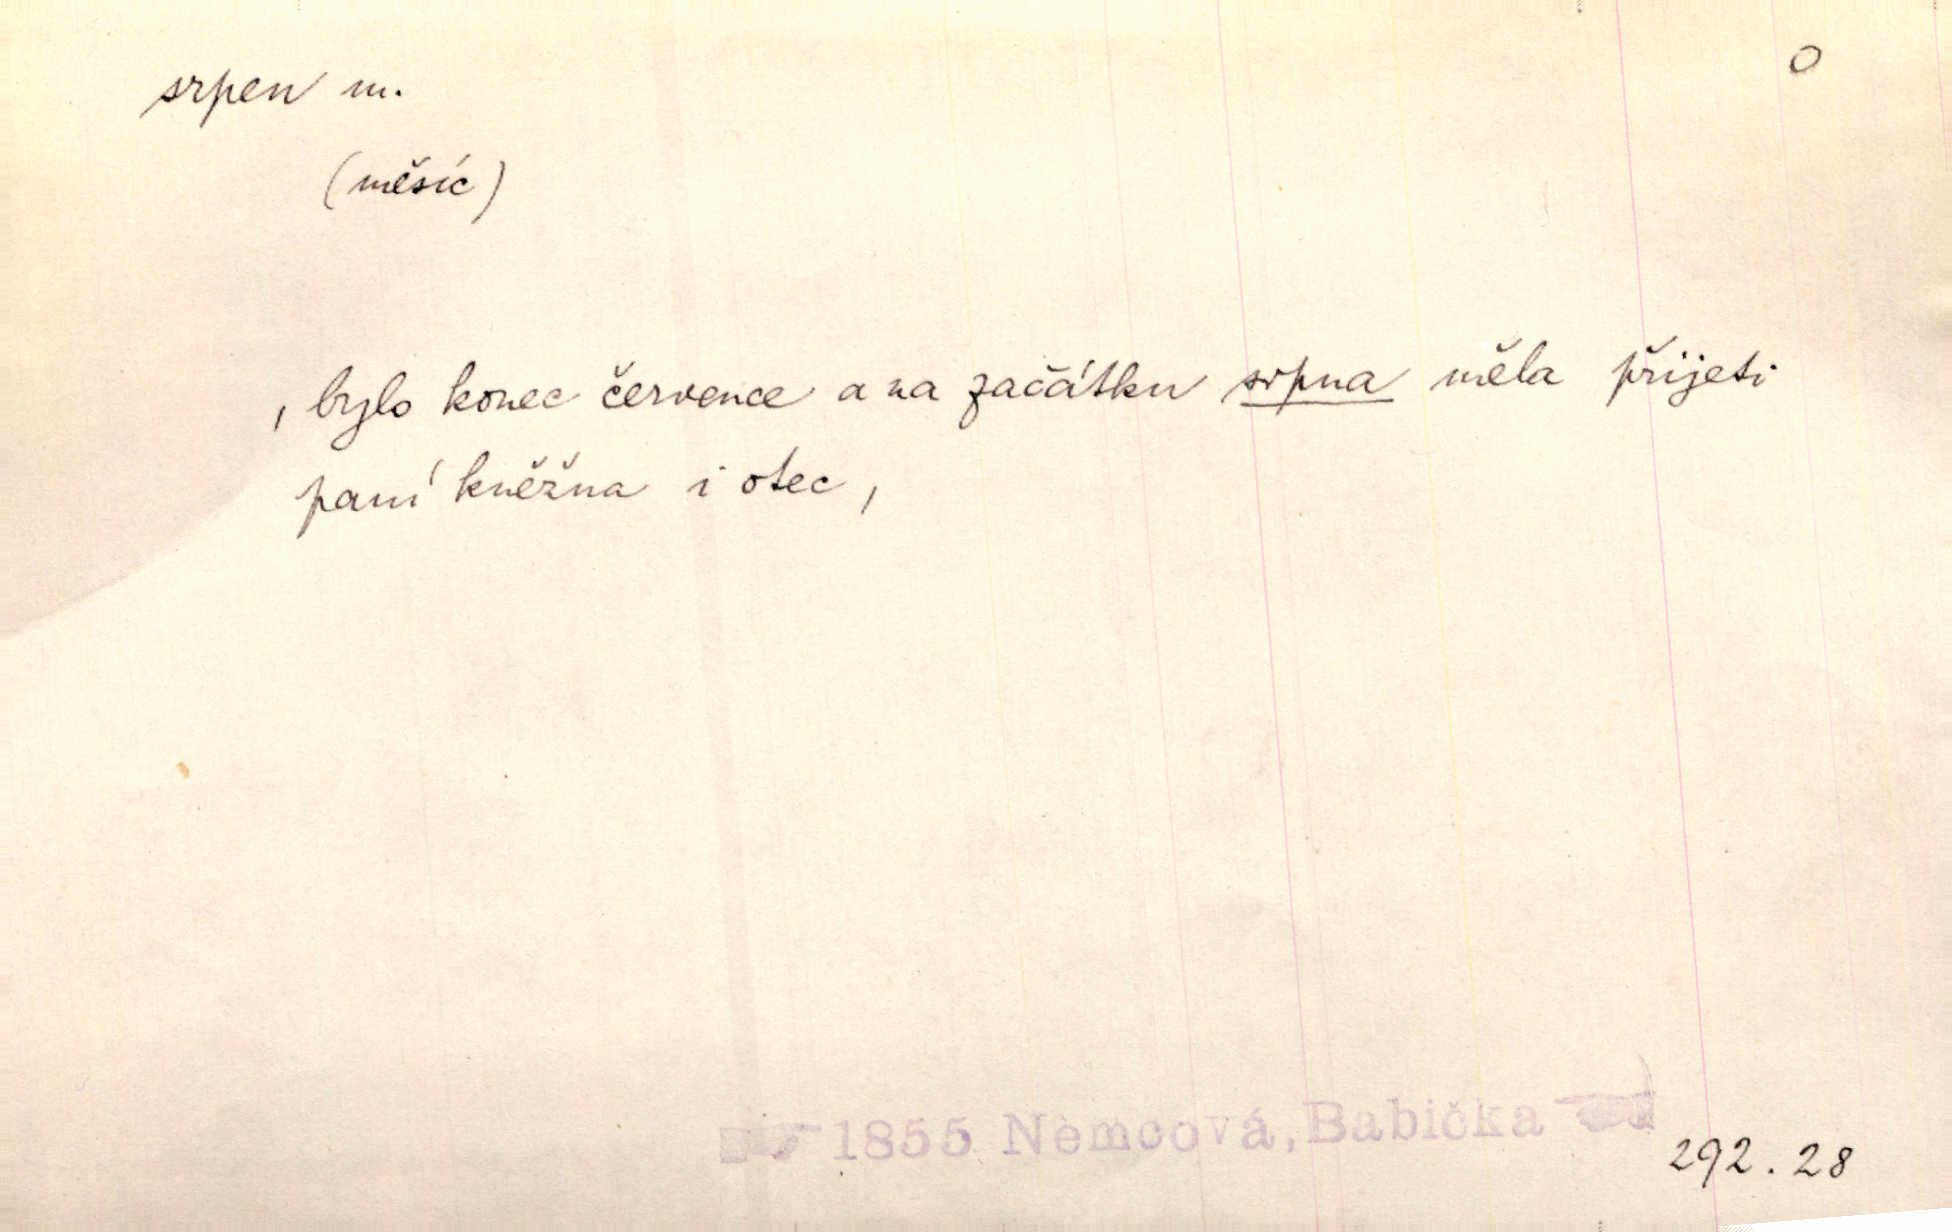 srpen m.
O
(měsíc)
, bylo konec července a na začátku srpna měla přijeti
paní kněžna i otec,
1855 Němcová, Babička
292.28